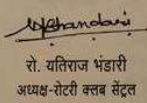 रो. यतिराज भंडारी
अध्यक्ष-रोटरी क्लब सेंट्रल